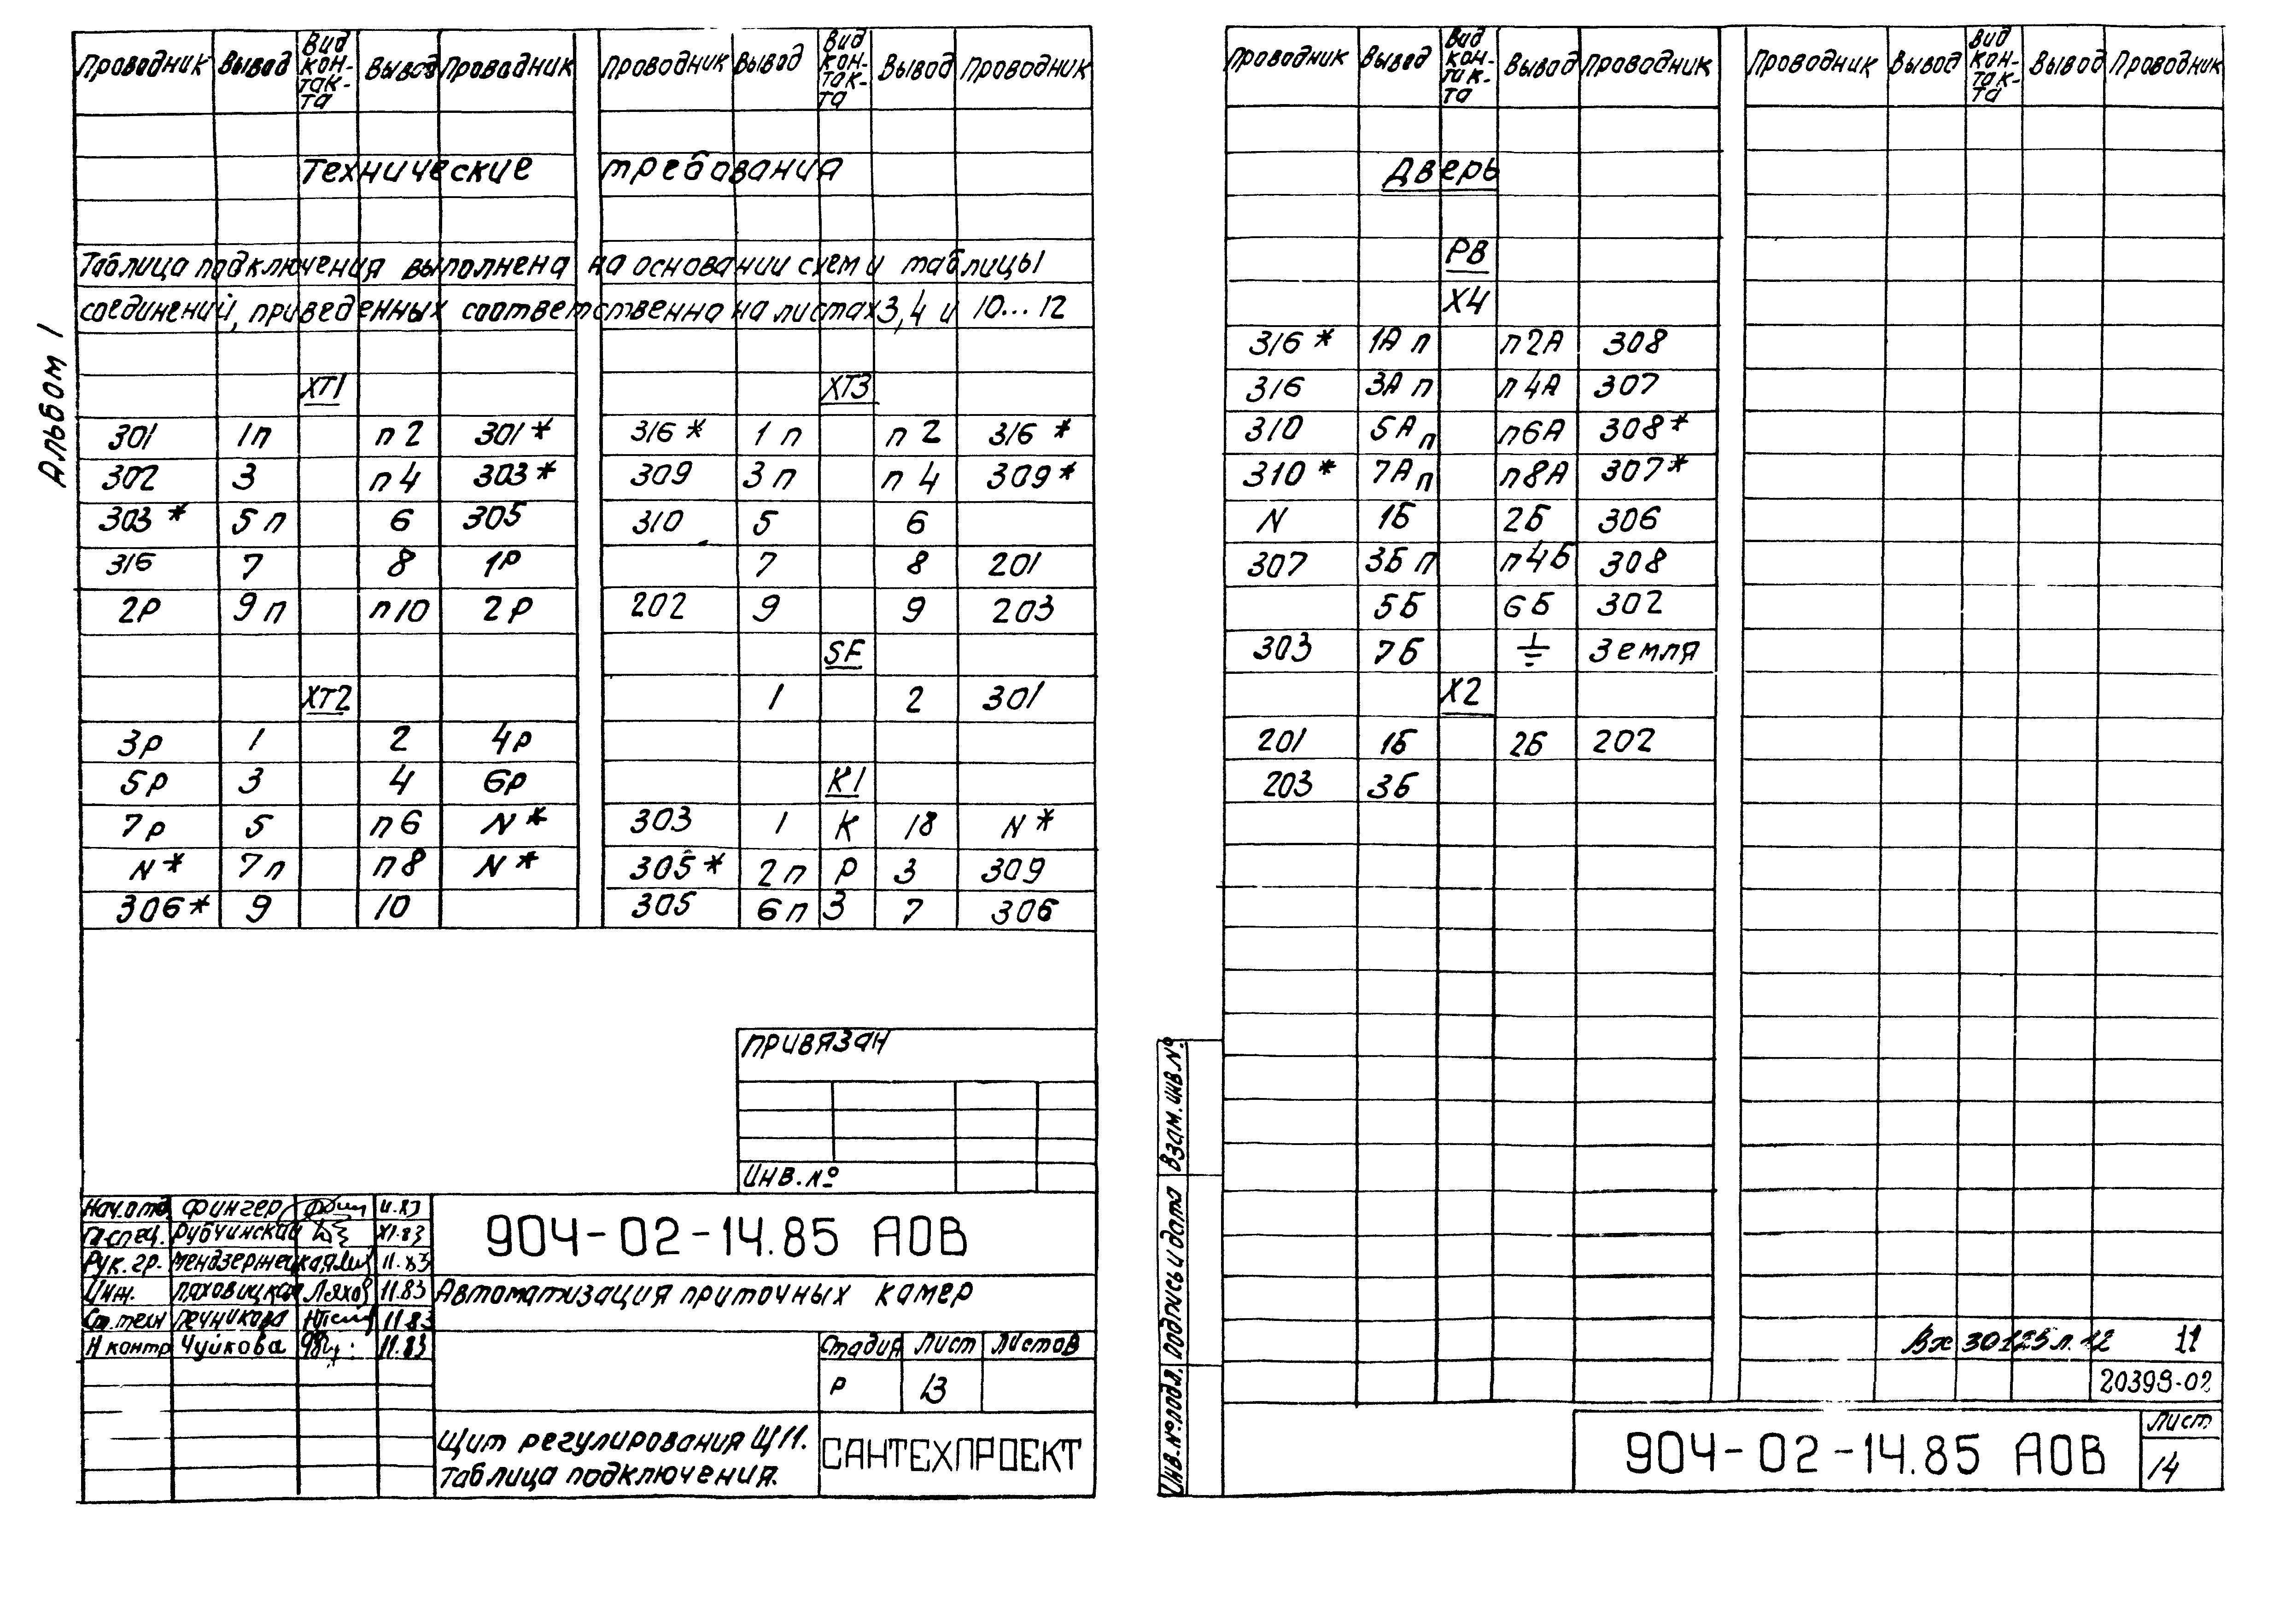 Альбом 1
Проводник Вывод Вид кон-так-та Вывод Проводник Проводник Вывод Вид кон-так-та Вывод Проводник
Технические требования
Таблица подключения выполнена на основании схем и таблицы
соединений, приведенных соответственно на листах 3, 4 и 10...12
ХТ1 ХТ3
301 1п п2 301* 316* 1п п2 316*
302 3 п4 303* 309 3п п4 309*
303* 5п 6 305 310 5 6
316 7 8 1Р 7 8 201
2Р 9п п10 2Р 202 9 9 203
SF
ХТ2 1 2 301
3Р 1 2 4Р
5Р 3 4 6Р К1
7Р 5 п6 N* 303 1 К 18 N*
N* 7п п8 N* 305* 2п Р 3 309
306* 9 10 305 6п З 7 306
Привязан
Инв. №
Нач.отд. Фингер 11.83
Гл.спец. Рубчинский XI.83
Рук. гр. Мендзержецкая 11.83
Инж. Ляховицкая Ляхов 11.83
Ст.техн Печникова 11.83
Н контр Чуйкова 11.83
904-02-14.85 АОВ
Автоматизация приточных камер
Стадия Лист Листов
Р 13
Щит регулирования Щ11.
Таблица подключения.
САНТЕХПРОЕКТ
Проводник Вывод Вид кон-так-та Вывод Проводник Проводник Вывод Вид кон-так-та Вывод Проводник
Дверь
РВ
Х4
316* 1А п п2А 308
316 3А п п4А 307
310 5А п п6А 308*
310* 7А п п8А 307*
N 1Б 2Б 306
307 3Б п п4Б 308
5Б 6Б 302
303 7Б ⏚ Земля
Х2
201 1Б 2Б 202
203 3Б
Взам. инв. №
Подпись и дата
Инв. № подл.
Вх 30125 л. 12 11
20398-02
904-02-14.85 АОВ
Лист
14